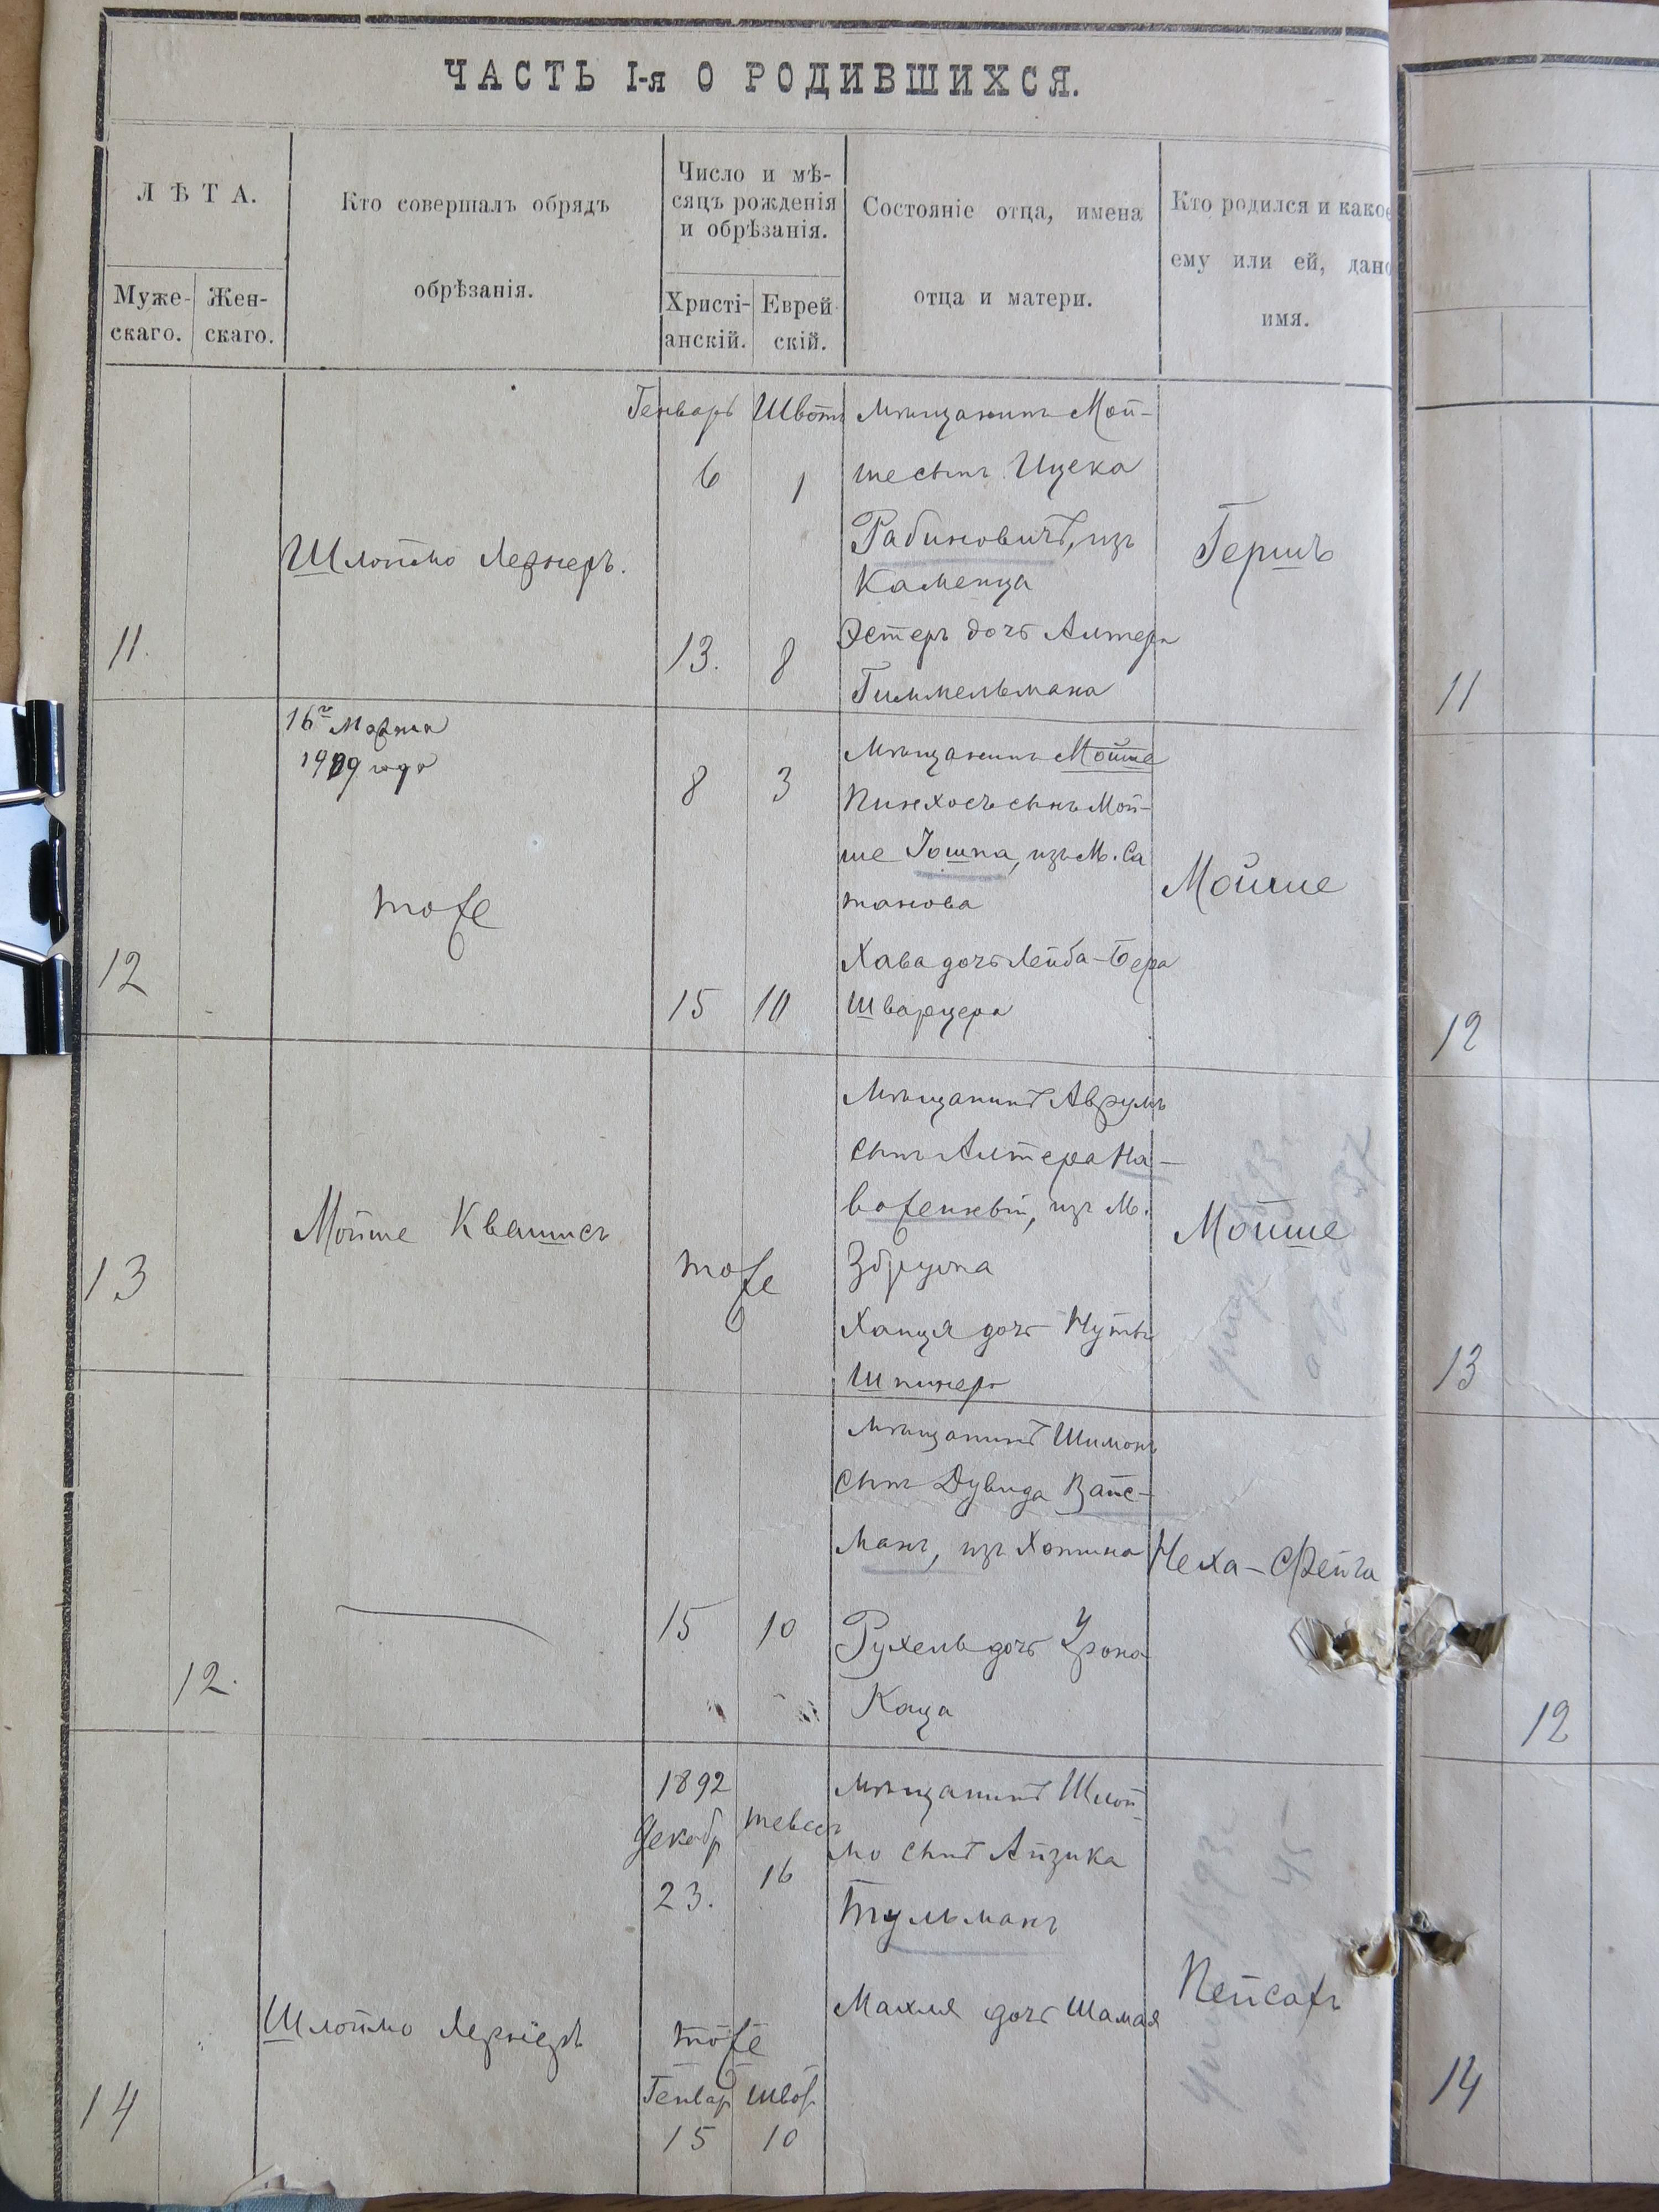 ЧАСТЬ I-я О РОДИВШИХСЯ.
ЛѢТА.
Муже-
скаго.
Жен-
скаго.
Кто совершалъ обрядъ
обрѣзанія.
Число и мѣ-
сяцъ рожденія
и обрѣзанія.
Христі-
анскій.
Еврей
скій.
Состояніе отца, имена
отца и матери.
Кто родился и какое
ему или ей, дано
имя.
11.
Шлоймо Лернеръ.
Генварь Швотъ
6 1
13. 8
Мѣщанинъ Мой-
ше сынъ Ицека
Рабиновичъ, изъ
Каменца
Эстеръ дочь Алтера
Гиммельмана
Гершъ
11
12
16го Марта
1909 года
тоже
8 3
15 10
Мѣщанинъ Мойше
Пинхосъ сынъ Мой-
ше Іошпа, изъ М. Са
танова
Хава дочь Лейба-Бера
Шварцера
Мойше
12
13
Мойше Квашисъ
тоже
Мѣщанинъ Аврумъ
сынъ Алтера На-
воженный, изъ М.
Збруча
Ханця дочь Нуты
Шпинера
Мойше
13
12.
15 10
Мѣщанинъ Шимонъ
сынъ Дувида Вайс-
манъ, изъ Хотина
Рухель дочь Урона
Каца
Неха-Фейга
12
14
Шлоймо Лернеръ
1892
Декабр Тевесъ
23. 16
тоже
Генвар Швот
15 10
Мѣщанинъ Шлой-
мо сынъ Айзика
Тульманъ
Махля дочь Шамая
Пейсахъ
14